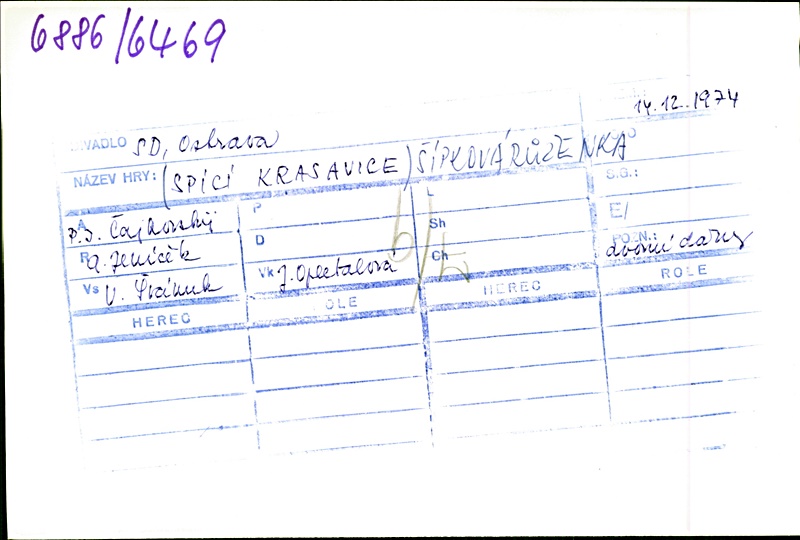 6886/6469
14.12.1974
DIVADLO SD, Ostrava
NÁZEV HRY: (SPÍCÍ KRASAVICE) ŠÍPKOVÁ RŮŽENKA
A P. I. Čajkovskij P L S.G.:
R A. Jeníček D Sh E/
Vs V. Šrámek Vk J. Opletalová Ch POZN.: dvorní dámy
HEREC ROLE HEREC ROLE